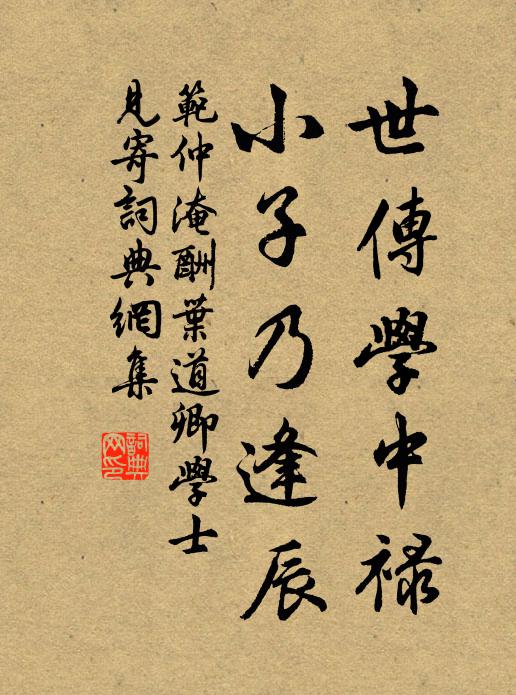 世傳學中祿
小子乃逢辰
範仲淹酬葉道卿學士
見寄詞典網集
詞典
网印